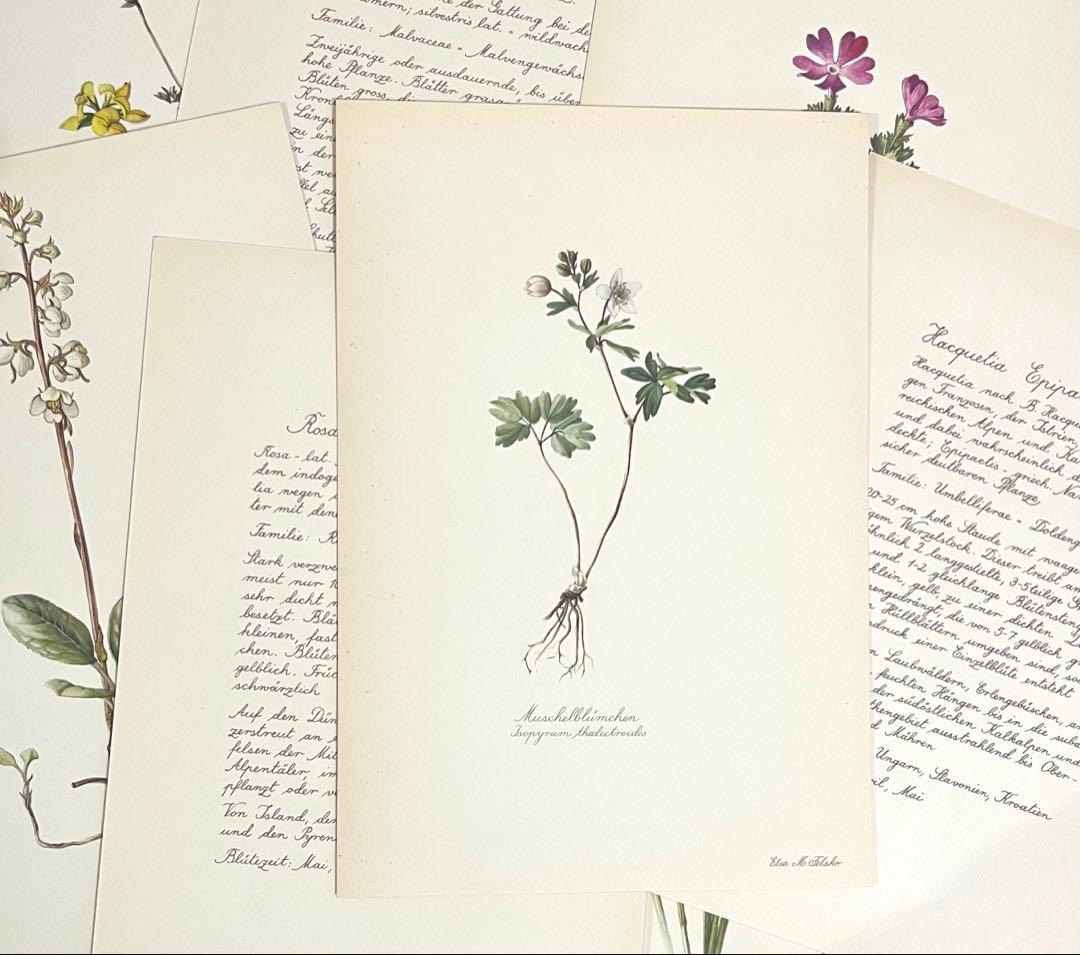 der Gattung bei
silvestris lat. = wildwach
Familie: Malvaceae = Malvengewächs
Zweijährige oder ausdauernde, bis über
hohe Pflanze. Blätter
Blüten gross,
Kron
Längs
zu ein
in der
Rosa
Rosa - lat.
dem indog
lia wegen
ter mit den
Familie: R
Stark verzw
meist nur 1
sehr dicht
besetzt. Blä
kleinen, fast
chen. Blüten
gelblich. Frü
schwärzlich
Auf den Dün
zerstreut an
felsen der Mi
Alpentäler, im
pflanzt oder v
Von Island, den
und den Pyren
Blütezeit: Mai,
Muschelblümchen
Isopyrum thalictroides
Elsa M. Felsko
Hacquetia Epipa
Hacquetia nach B. Hacqu
gen Franzosen, der Istrien,
reichischen Alpen und Ka
und dabei wahrscheinlich d
deckte; Epipactis - griech. Na
sicher deutbaren Pflanze
Familie: Umbelliferae = Doldeng
20-25 cm hohe Staude mit waage
igem Wurzelstock. Dieser treibt am
öhnlich 2 langgestielte, 3-5teilige
und 1-2 gleichlange Blütensteng
klein, gelb, zu einer dichten
engedrängt, die von 5-7 gelblich g
Hüllblättern umgeben sind, so
druck einer Einzelblüte entsteht
n Laubwäldern, Erlengebüschen, an
feuchten Hängen bis in die suba
der südöstlichen Kalkalpen und
hengebiet ausstrahlend bis Ober-
d Mähren
Ungarn, Slavonien, Kroatien
ril, Mai